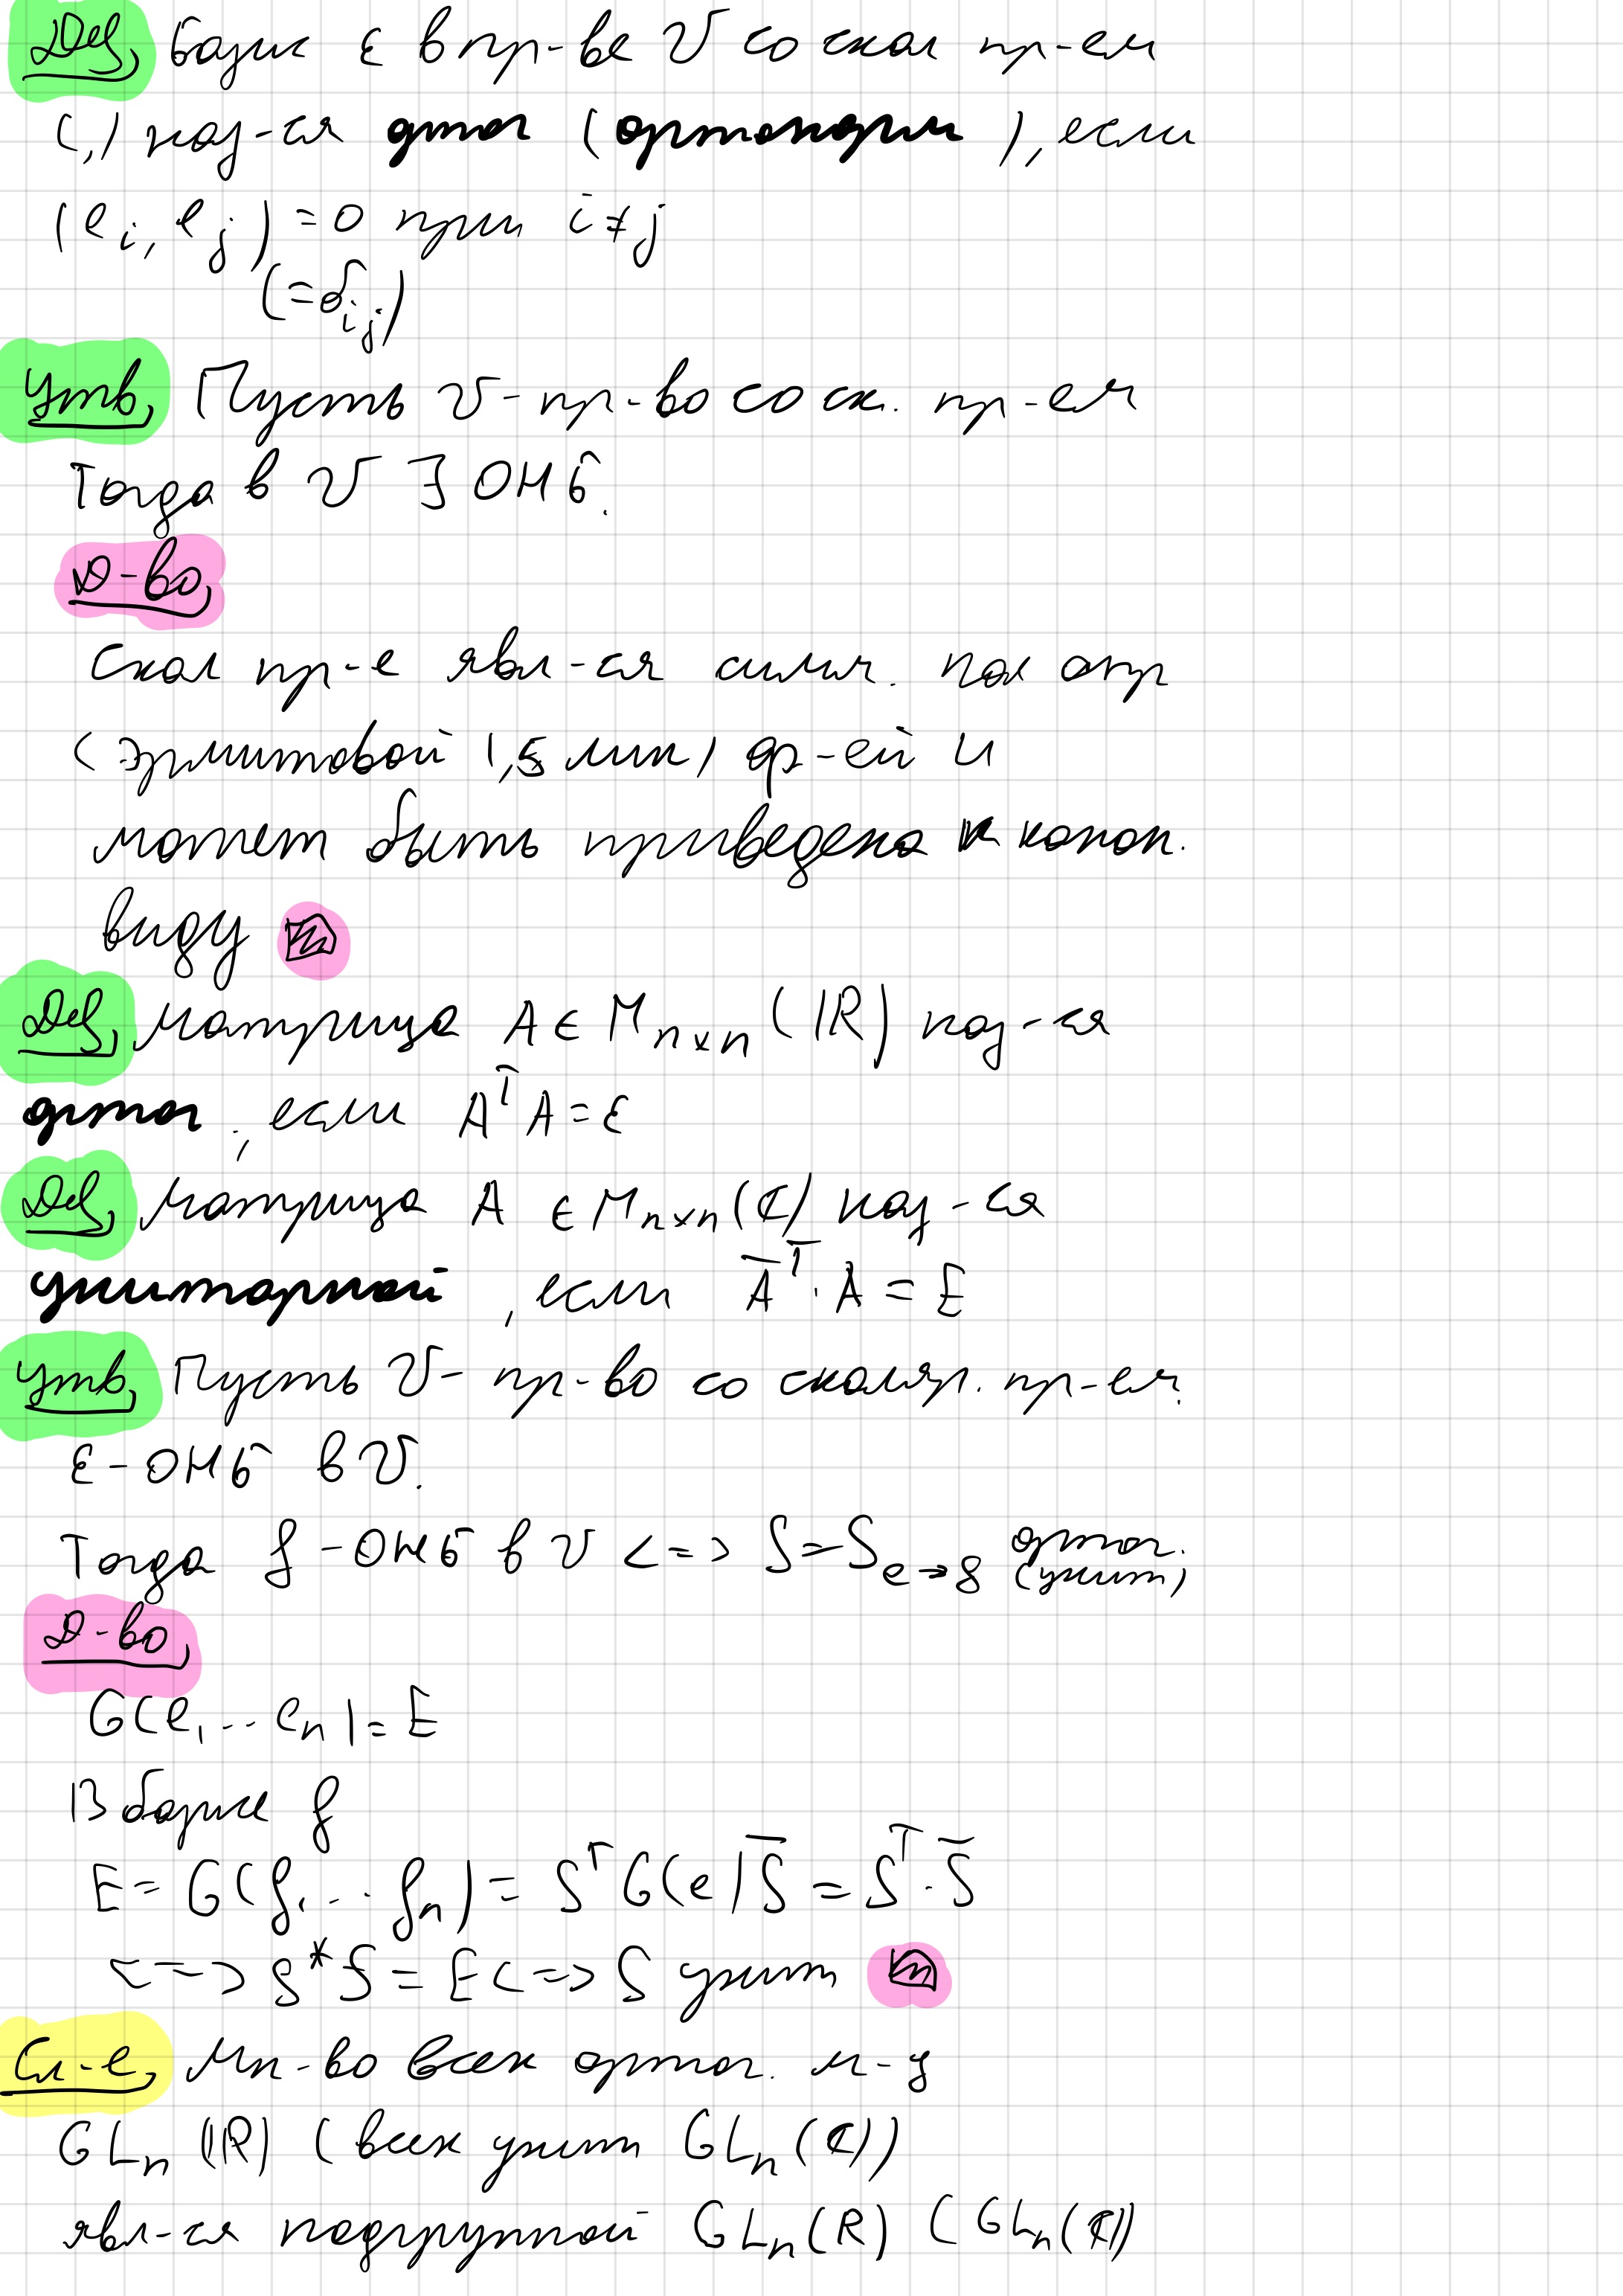 Def, базис ε в пр-ве V со скал пр-ем
(,) наз-ся ортог (ортонорм), если
(e_i, e_j) = 0 при i ≠ j
(= δ_ij)
Утв, Пусть V - пр-во со ск. пр-ем
Тогда в V ∃ ОНБ.
Д-во,
Скал пр-е явл-ся симм. пол опр
(эрмитовой 1,5 лин) ф-ей и
может быть приведена к канон.
виду
Def, Матрица A ∈ M_{n×n} (ℝ) наз-ся
ортог, если A^T A = ε
Def, Матрица A ∈ M_{n×n} (ℂ) наз-ся
унитарной, если A̅^T · A = E
Утв, Пусть V - пр-во со скаляр. пр-ем.
ε - ОНБ в V.
Тогда f - ОНБ в V <=> S = S_{e→f} ортог. (унит)
Д-во,
G(e_1 ... e_n) = E
В базисе f
E = G(f_1 ... f_n) = S^T G(e) S̅ = S^T · S̅
<=> S* S = E <=> S унит
Сл-е, Мн-во всех ортог. м-ц
GL_n (ℝ) (всех унит GL_n (ℂ))
явл-ся подгруппой GL_n (R) (GL_n (ℂ))